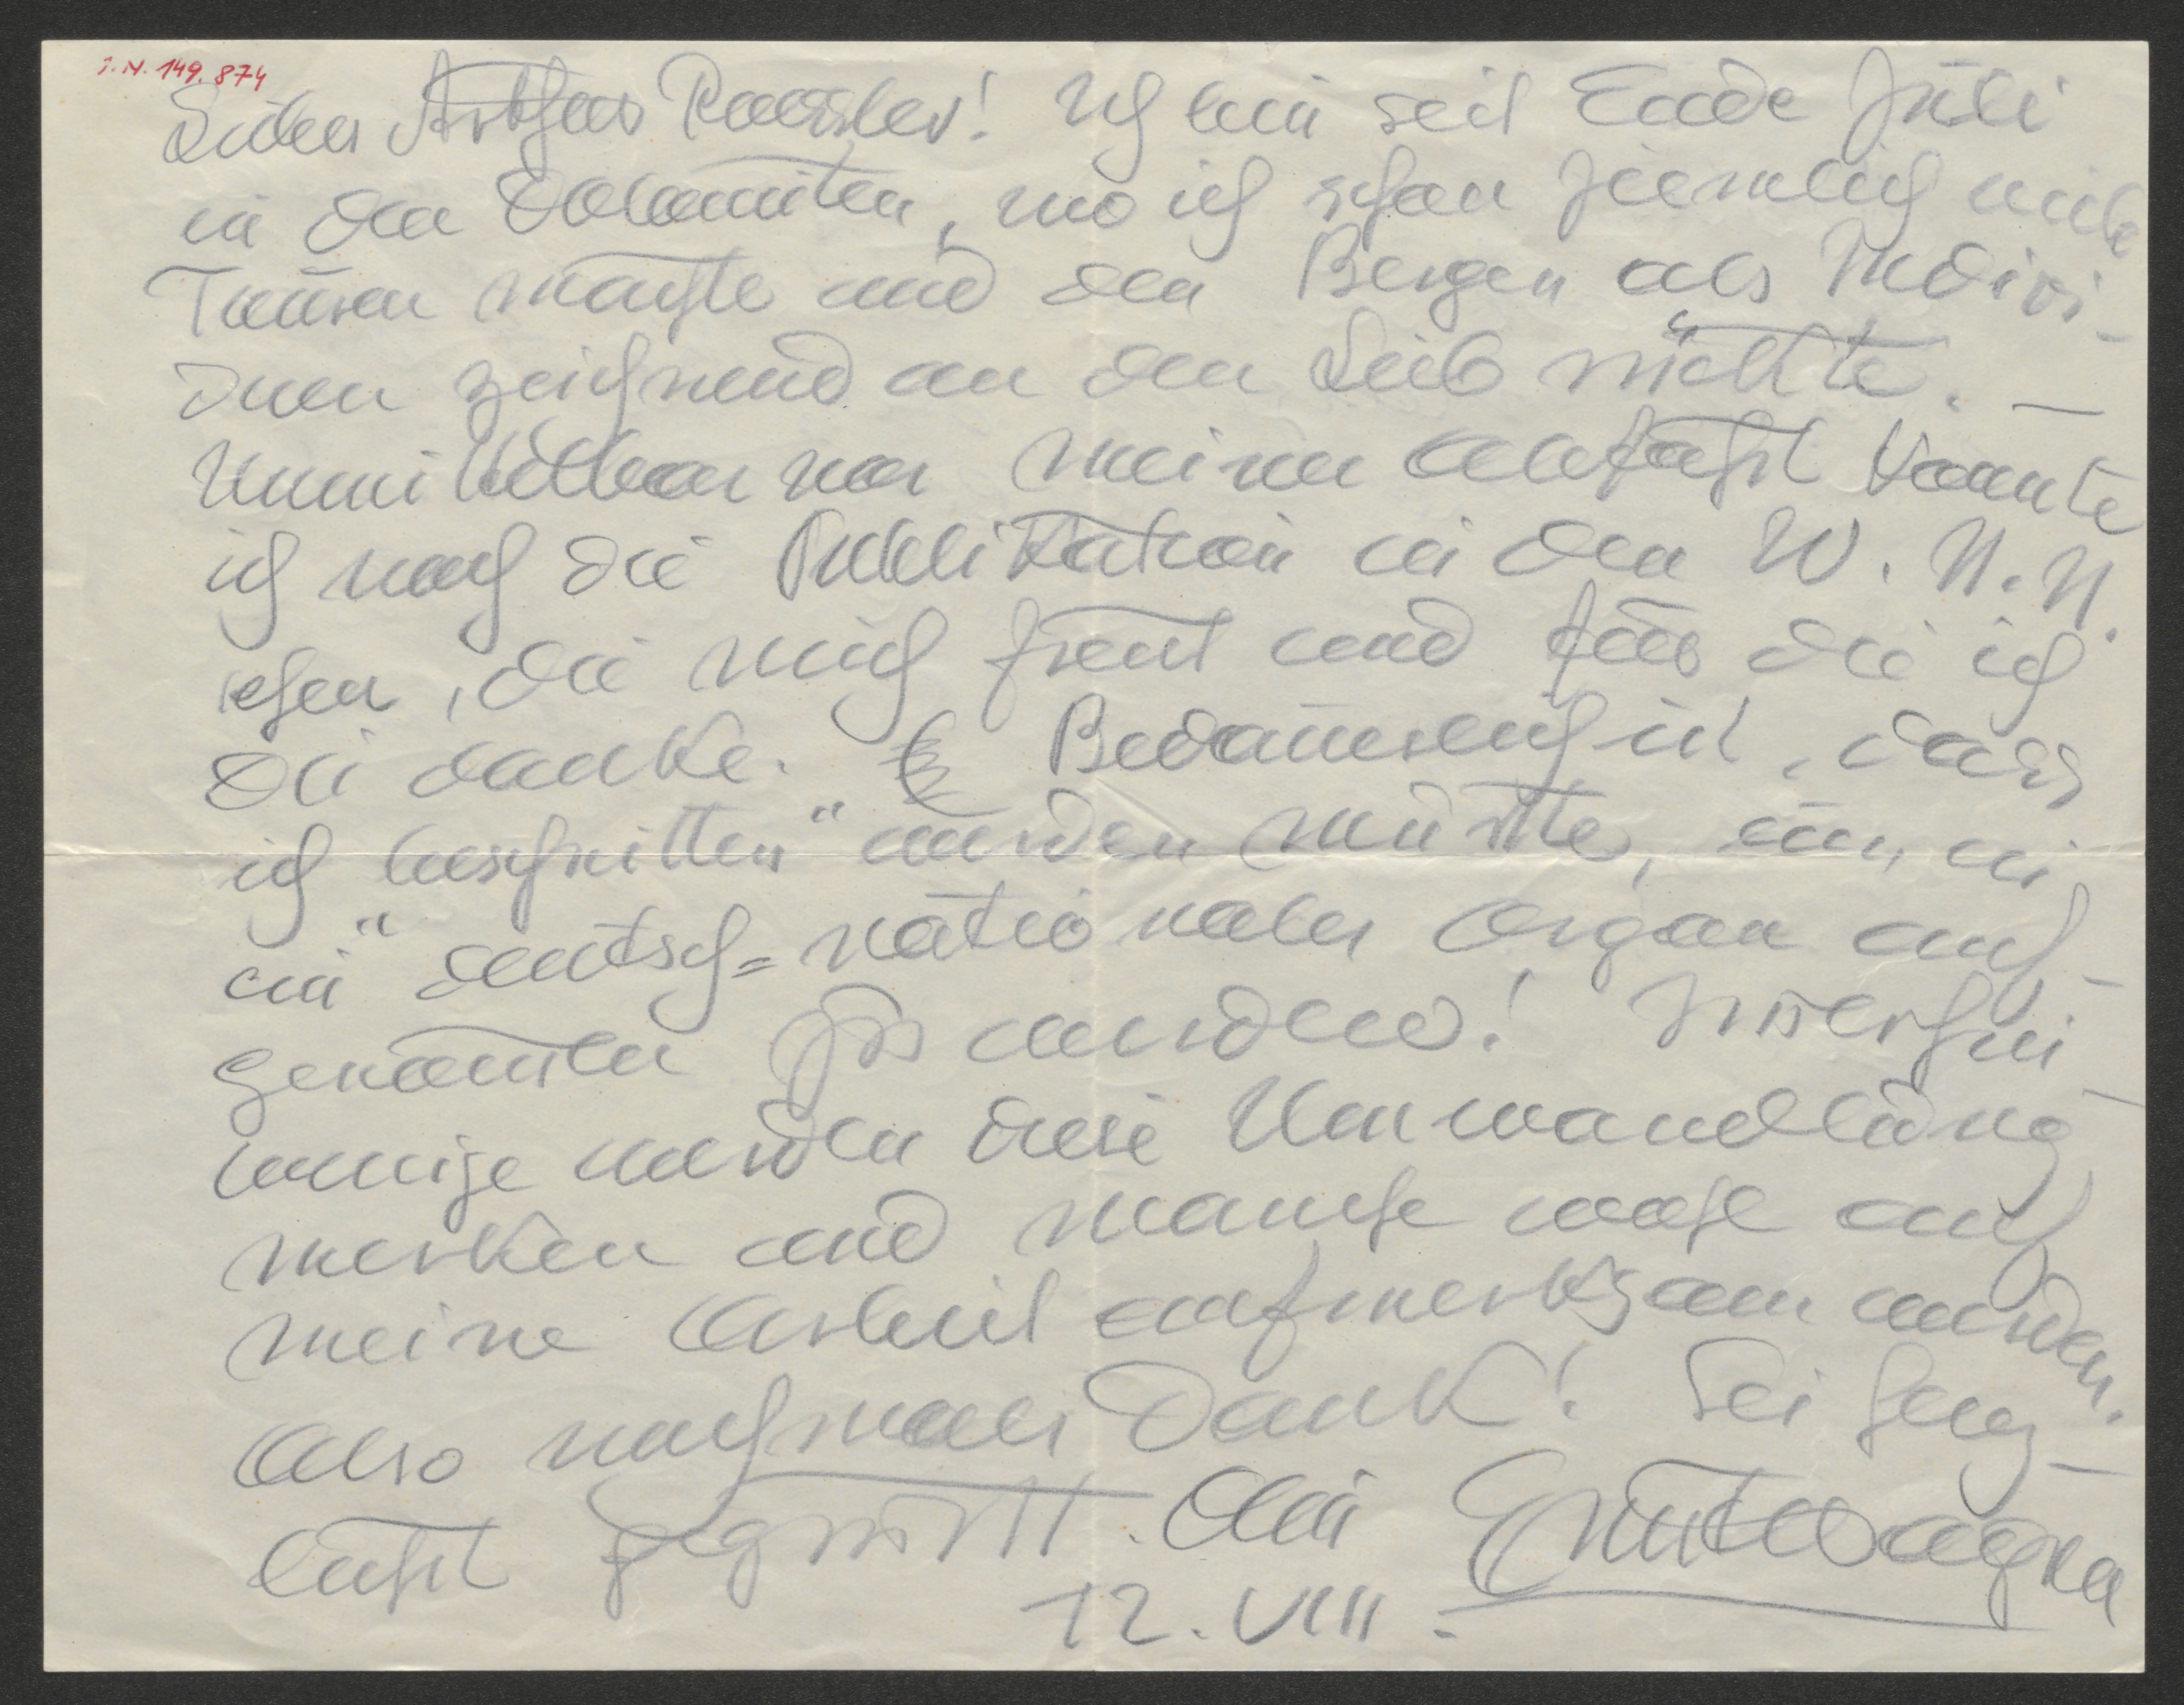 I.N. 149.874
Lieber Arthur Roessler! Ich bin seit Ende Juli
in den Dolomiten, wo ich schon ziemlich viele
Touren machte und den Bergen als Indivi-
duen zeichnend an den Leib rückte. —
Unmittelbar vor meiner Abfahrt konnte
ich noch die Publikation in den W. N. N.
sehen, die mich freut und für die ich
Dir danke. Bedauerlich ist, dass
ich „beschnitten“ werden musste, um in
ein „deutsch=nationales Organ auf-
genommen zu werden! Immerhin
einige werden diese Umwandlung
merken und manche wohl auf
meine Arbeit aufmerksam werden.
Also nochmals Dank! Sei herz-
lichst gegrüsst. Dein Ernst Wagner
12. VIII.